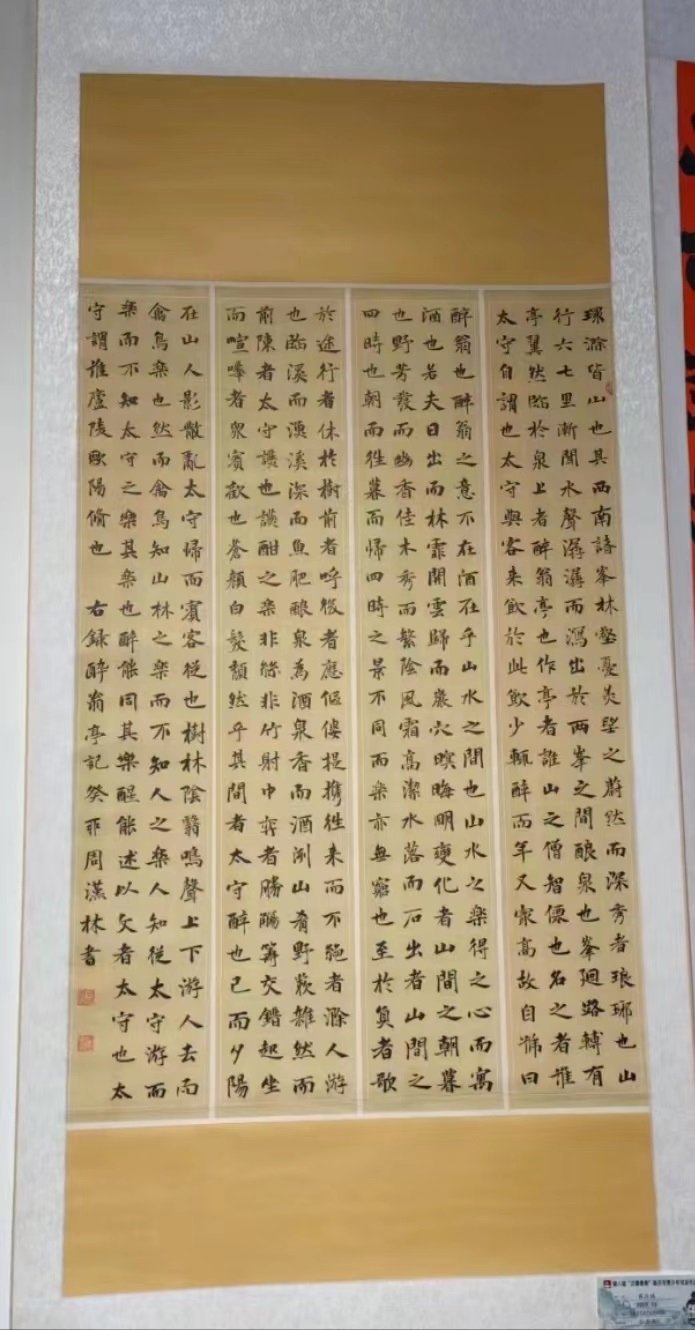 環滁皆山也其西南諸峯林壑憂美望之蔚然而深秀者琅琊也山
行六七里漸聞水聲潺潺而瀉出於兩峯之間釀泉也峯迴路轉有
亭翼然臨於泉上者醉翁亭也作亭者誰山之僧智僊也名之者誰
太守自謂也太守與客来飲於此飲少輒醉而年又㝡高故自號曰
醉翁也醉翁之意不在酒在乎山水之間也山水之樂得之心而寓
酒也若夫日出而林霏開雲歸而巖穴暝晦明變化者山間之朝暮
也野芳發而幽香佳木秀而繁陰風霜高潔水落而石出者山間之
四時也朝而往暮而歸四時之景不同而樂亦無窮也至於負者歌
於途行者休於樹前者呼後者應傴僂提攜往来而不絶者滁人游
也臨溪而漁溪深而魚肥釀泉為酒泉香而酒洌山肴野蔌雜然而
前陳者太守讌也讌酣之樂非絲非竹射中弈者勝觥籌交錯起坐
而喧嘩者衆賓歡也蒼顏白髮頹然乎其間者太守醉也已而夕陽
在山人影散亂太守歸而賓客從也樹林陰翳鳴聲上下游人去而
禽鳥樂也然而禽鳥知山林之樂而不知人之樂人知從太守游而
樂而不知太守之樂其樂也醉能同其樂醒能述以文者太守也太
守謂誰廬陵歐陽脩也 右録醉翁亭記癸邜周林書